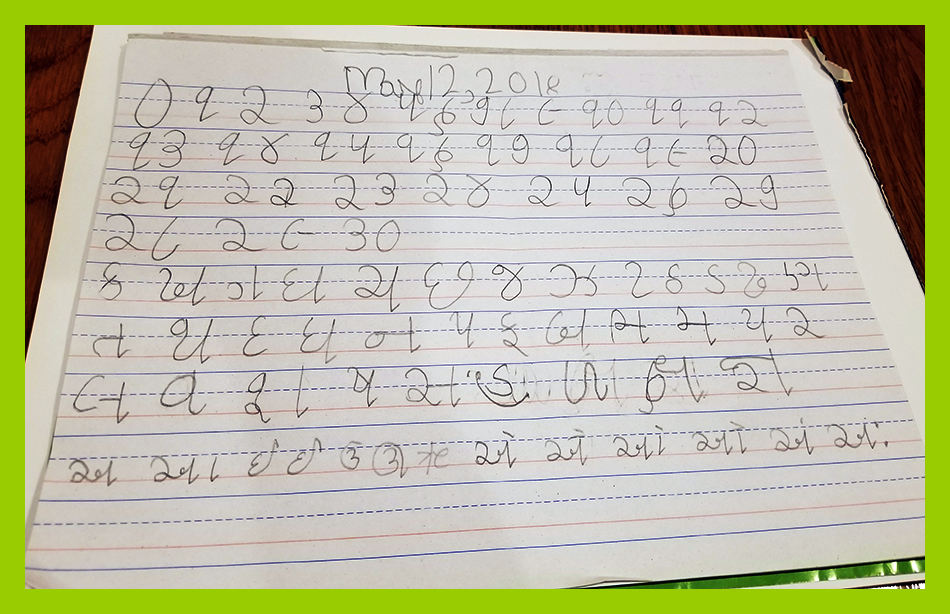 May 12, 2018
૦ ૧ ૨ ૩ ૪ ૫ ૬ ૭ ૮ ૯ ૧૦ ૧૧ ૧૨
૧૩ ૧૪ ૧૫ ૧૬ ૧૭ ૧૮ ૧૯ ૨૦
૨૧ ૨૨ ૨૩ ૨૪ ૨૫ ૨૬ ૨૭
૨૮ ૨૯ ૩૦
ક ખ ગ ઘ ચ છ જ ઝ ટ ઠ ડ ઢ ણ
ત થ દ ધ ન પ ફ બ ભ મ ય ર
લ વ શ ષ સ હ ળ ક્ષ જ્ઞ
અ આ ઇ ઈ ઉ ઊ ઋ એ ઐ ઓ ઔ અં અઃ